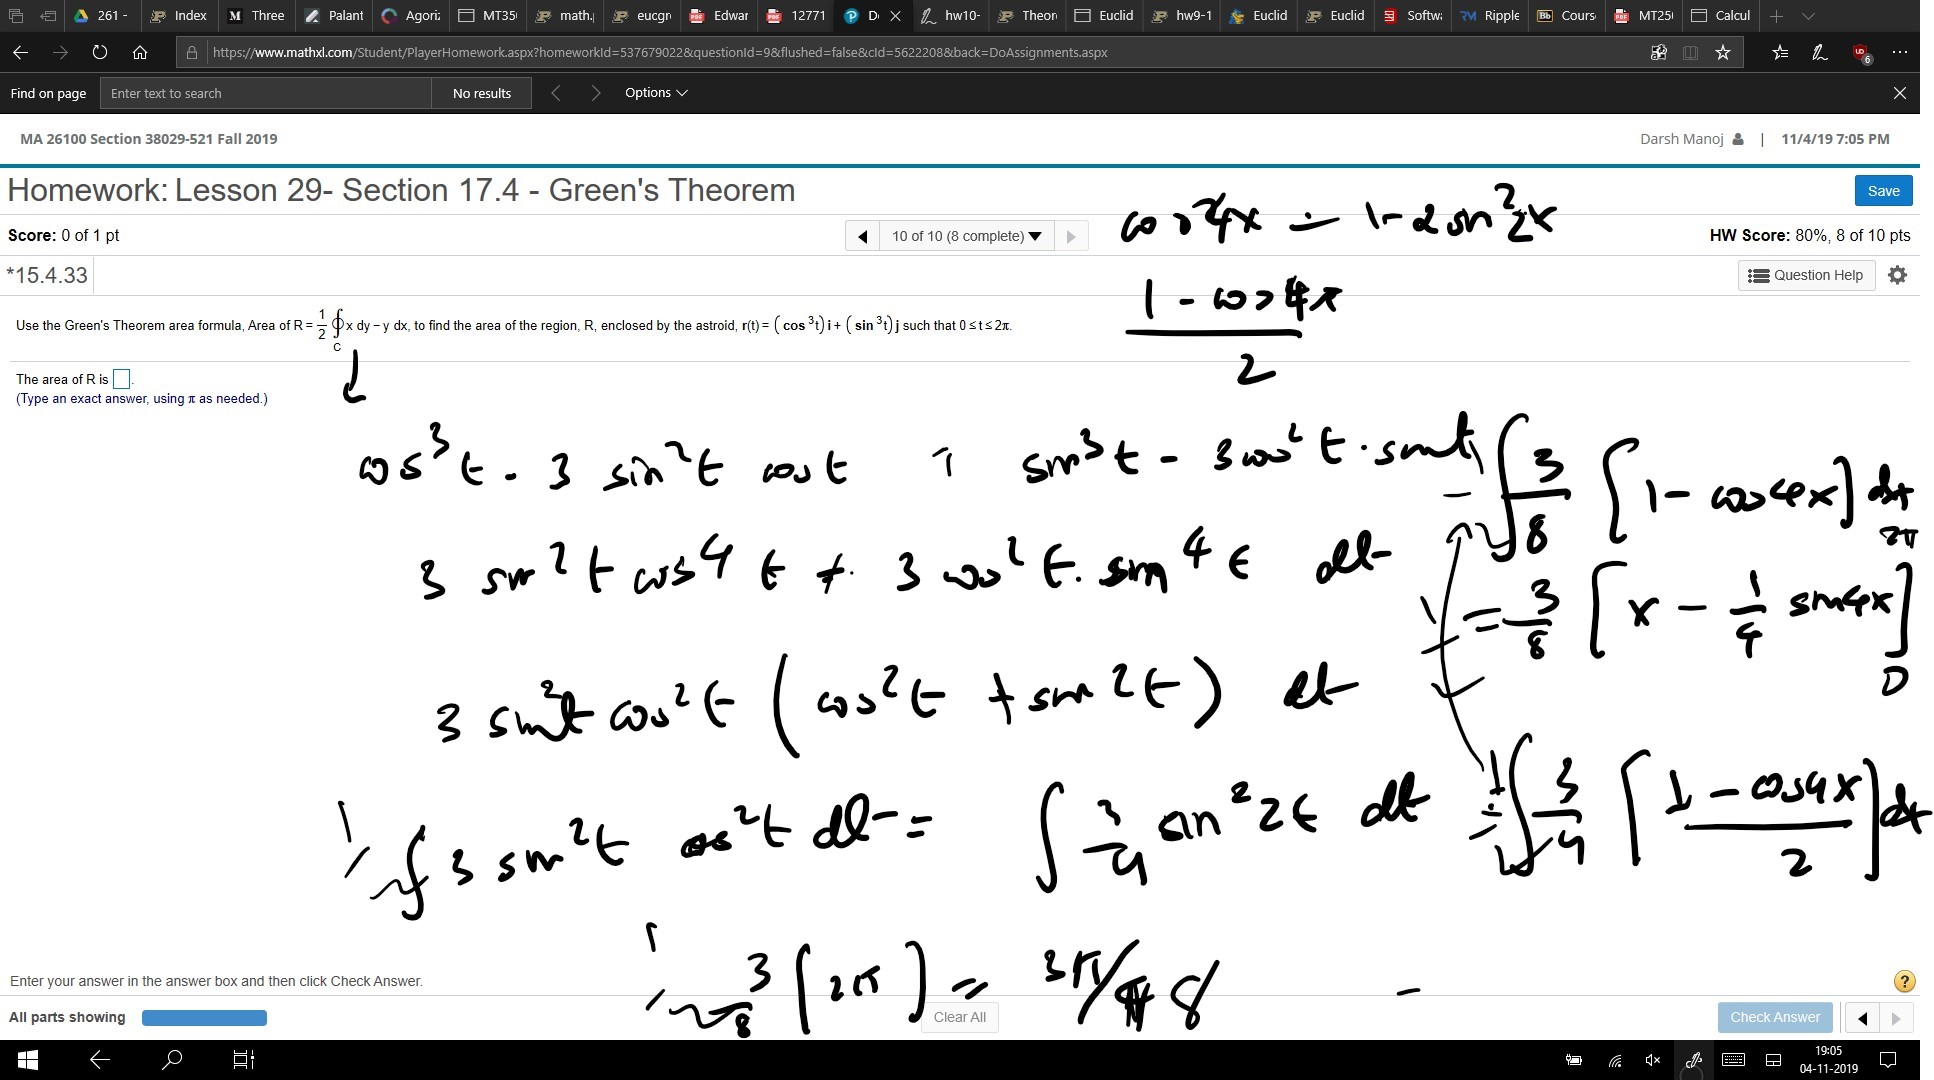 261 - Index Three Palant Agoriz MT35 math. eucgr Edwar 12771 D hw10- Theor Euclid hw9-1 Euclid Euclid Softwa Ripple Cours MT25 Calcul
https://www.mathxl.com/Student/PlayerHomework.aspx?homeworkId=537679022&questionId=9&flushed=false&cId=5622208&back=DoAssignments.aspx
Find on page Enter text to search No results Options
MA 26100 Section 38029-521 Fall 2019 Darsh Manoj | 11/4/19 7:05 PM
Homework: Lesson 29- Section 17.4 - Green's Theorem Save
Score: 0 of 1 pt 10 of 10 (8 complete) HW Score: 80%, 8 of 10 pts
cos 4x = 1-2 sin²2x
*15.4.33 Question Help
1 - cos 4x / 2
Use the Green's Theorem area formula, Area of R = 1/2 ∮C x dy − y dx, to find the area of the region, R, enclosed by the astroid, r(t) = (cos ³t) i + (sin ³t) j such that 0 ≤ t ≤ 2π.
The area of R is .
(Type an exact answer, using π as needed.)
cos³t . 3 sin²t cos t + sin³t - 3cos²t . sin t
= ∫ 3/8 [1 - cos4x] dx
3 sin²t cos⁴t + 3 cos²t . sin⁴t dt
= 3/8 [x - 1/4 sin4x] 2π 0
3 sin²t cos²t (cos²t + sin²t) dt
1/2 ∫ 3 sin²t cos²t dt = ∫ 3/4 sin²2t dt = 1/2 ∫ 3/4 [1 - cos4x / 2] dx
1/2 3/8 [2π] = 3π/8
Enter your answer in the answer box and then click Check Answer.
All parts showing Clear All Check Answer
19:05
04-11-2019